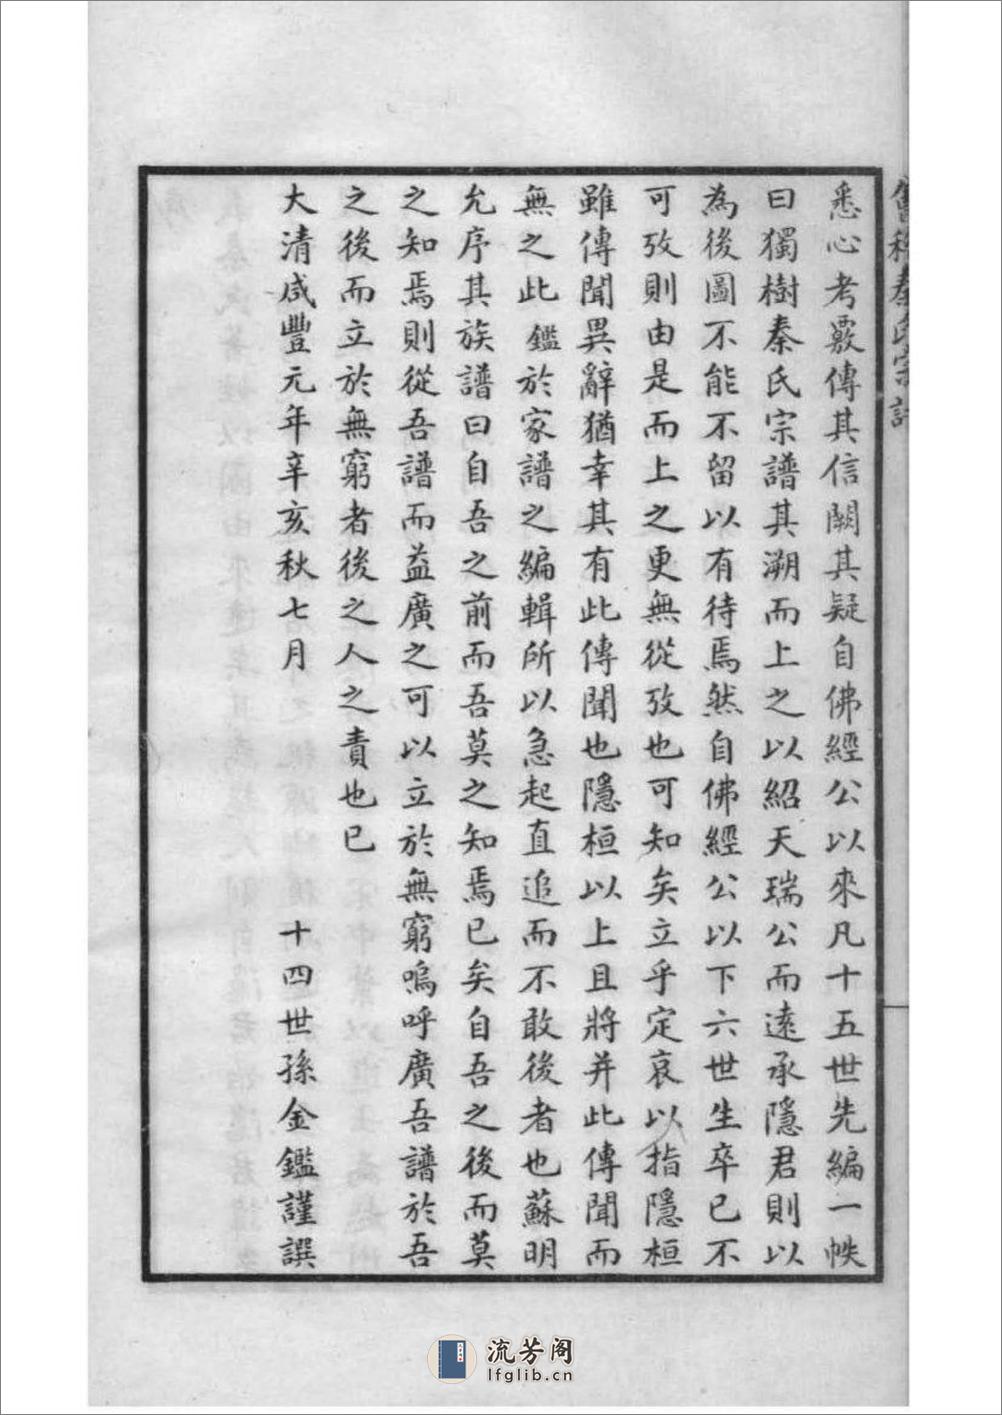 會稽秦氏宗譜
悉心考覈傳其信闕其疑自佛經公以來凡十五世先編一帙
曰獨樹秦氏宗譜其溯而上之以紹天瑞公而遠承隱君則以
為後圖不能不留以有待焉然自佛經公以下六世生卒已不
可攷則由是而上之更無從攷也可知矣立乎定哀以指隱桓
雖傳聞異辭猶幸其有此傳聞也隱桓以上且將并此傳聞而
無之此鑑於家譜之編輯所以急起直追而不敢後者也蘇明
允序其族譜曰自吾之前而吾莫之知焉已矣自吾之後而莫
之知焉則從吾譜而益廣之可以立於無窮嗚呼廣吾譜於吾
之後而立於無窮者後之人之責也已
大清咸豐元年辛亥秋七月 十四世孫金鑑謹譔
流芳阁
lfglib.cn